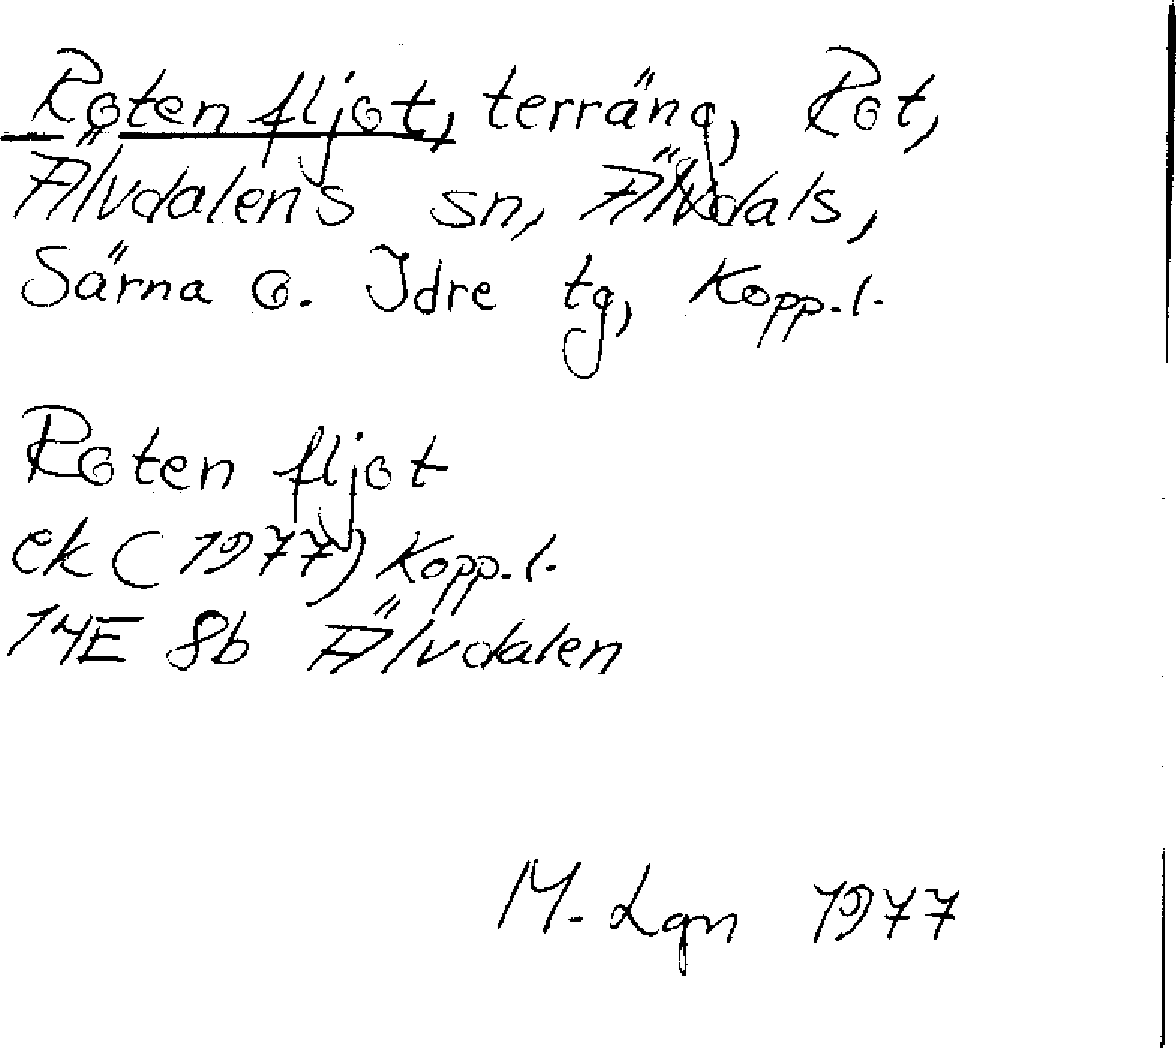 Roten fljot, terräng, Rot,
Älvdalens sn, Älvdals,
Särna o. Idre tg, Kopp.l.
Roten fljot
ek (1977) Kopp.l.
14E 8b Älvdalen
M. Lqn 1977